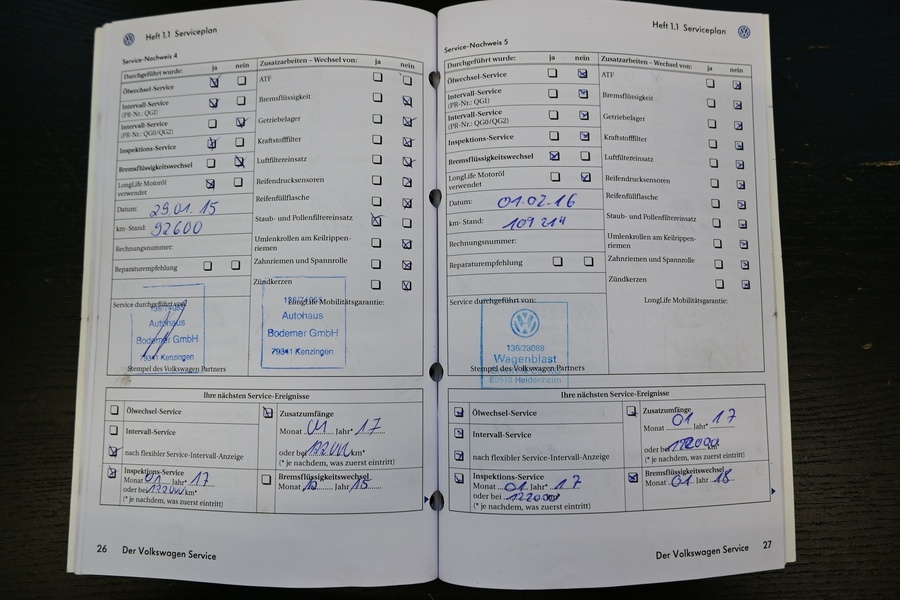 Heft 1.1 Serviceplan
Service-Nachweis 4
Durchgeführt wurde: ja nein
Ölwechsel-Service
Intervall-Service
(PR-Nr.: QGI)
Intervall-Service
(PR-Nr.: QG0/QG2)
Inspektions-Service
Bremsflüssigkeitswechsel
LongLife Motoröl
verwendet
Datum: 29.01.15
km-Stand: 92600
Rechnungsnummer:
Reparaturempfehlung
Zusatzarbeiten – Wechsel von: ja nein
ATF
Bremsflüssigkeit
Getriebeölager
Kraftstofffilter
Luftfiltereinsatz
Reifendrucksensoren
Reifenfüllflasche
Staub- und Pollenfiltereinsatz
Umlenkrollen am Keilrippen-
riemen
Zahnriemen und Spannrolle
Zündkerzen
Service durchgeführt von:
Autohaus
Bodemer GmbH
79341 Kenzingen
Stempel des Volkswagen Partners
LongLife Mobilitätsgarantie:
Autohaus
Bodemer GmbH
79341 Kenzingen
Ihre nächsten Service-Ereignisse
Ölwechsel-Service
Intervall-Service
nach flexibler Service-Intervall-Anzeige
Inspektions-Service
Monat 01 Jahr* 17
oder bei km*
(* je nachdem, was zuerst eintritt)
Zusatzumfänge
Monat 01 Jahr* 17
oder bei km*
(* je nachdem, was zuerst eintritt)
Bremsflüssigkeitswechsel
Monat Jahr 15
26 Der Volkswagen Service
Heft 1.1 Serviceplan
Service-Nachweis 5
Durchgeführt wurde: ja nein
Ölwechsel-Service
Intervall-Service
(PR-Nr.: QGI)
Intervall-Service
(PR-Nr.: QG0/QG2)
Inspektions-Service
Bremsflüssigkeitswechsel
LongLife Motoröl
verwendet
Datum: 01.02.16
km-Stand: 109214
Rechnungsnummer:
Reparaturempfehlung
Zusatzarbeiten – Wechsel von: ja nein
ATF
Bremsflüssigkeit
Getriebeölager
Kraftstofffilter
Luftfiltereinsatz
Reifendrucksensoren
Reifenfüllflasche
Staub- und Pollenfiltereinsatz
Umlenkrollen am Keilrippen-
riemen
Zahnriemen und Spannrolle
Zündkerzen
Service durchgeführt von:
136/28088
Wagenblast
Heidenheim
Stempel des Volkswagen Partners
LongLife Mobilitätsgarantie:
Ihre nächsten Service-Ereignisse
Ölwechsel-Service
Intervall-Service
nach flexibler Service-Intervall-Anzeige
Inspektions-Service
Monat 01 Jahr* 17
oder bei 122000 km*
(* je nachdem, was zuerst eintritt)
Zusatzumfänge
Monat 01 Jahr* 17
oder bei km*
(* je nachdem, was zuerst eintritt)
Bremsflüssigkeitswechsel
Monat 01 Jahr 18
Der Volkswagen Service 27